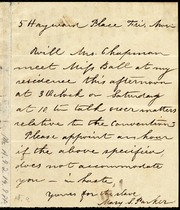 5 Hayward Place Fri. Mor
Will Mrs. Chapman
meet Miss Ball at my
residence this afternoon
at 3 O'clock or Saturday
at 10 to talk over matters
relative to the Convention
Please appoint an hour
if the above specified
does not accommodate
you — in haste
yours for
Mary S. Parker